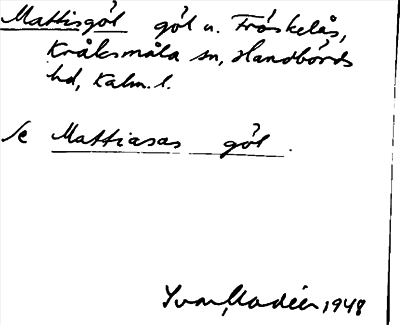 Mattisgöl göl u. Fröskelås,
Kråksmåla sn, Handbörds
hd, Kalm. l.
se Mattiasas göl.
Ivar Modéer, 1948